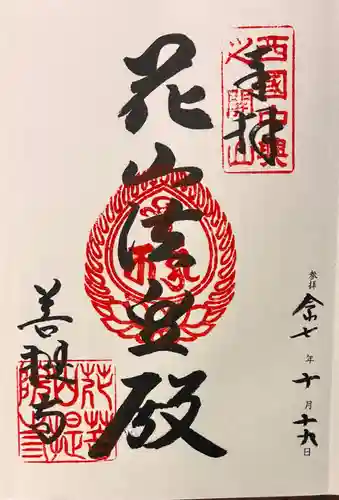 奉拝
西國中興
之開山
花山法皇殿
菩提寺
参拝 令和七年十月十九日